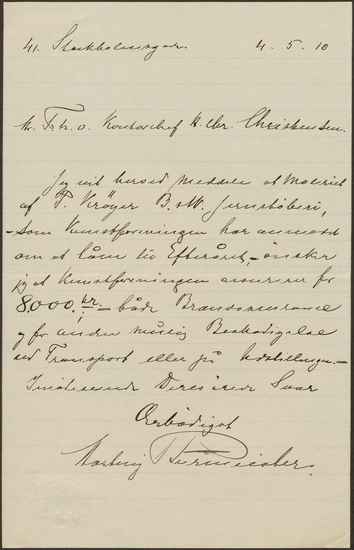 41. Stockholmsgade 4.5.10
Hr. Fuldm. o. Kontorchef H. Chr. Christensen.
Jeg vil herved meddele at Maleriet
af P. Krøyer B. & W. Jernstøberi,
- som Kunstforeningen har anmodet
om at låne til Efteråret, - ønsker
jeg at Kunstforeningen assurerer for
8000 kr. - både Brandassurance
og for anden mulig Beskadigelse
ved Transport eller på Udstillingen. -
Imødeseende Deres ærede Svar
Ærbødigst
Burmeister.